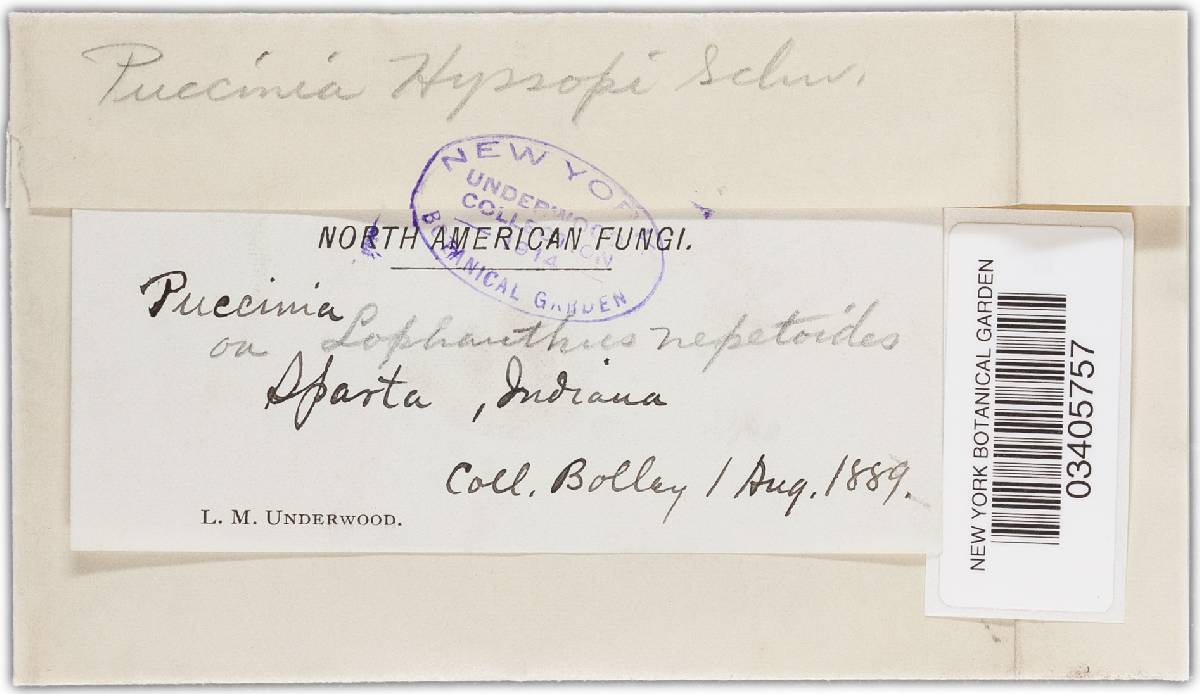 Puccinia Hyssopi Schw.
NEW YORK
UNDERWOOD
COLLECTION
1914
BOTANICAL GARDEN
NORTH AMERICAN FUNGI.
Puccinia
on Lophanthus nepetoides
Sparta, Indiana
Coll. Bolley 1 Aug. 1889.
L. M. UNDERWOOD.
NEW YORK BOTANICAL GARDEN
03405757